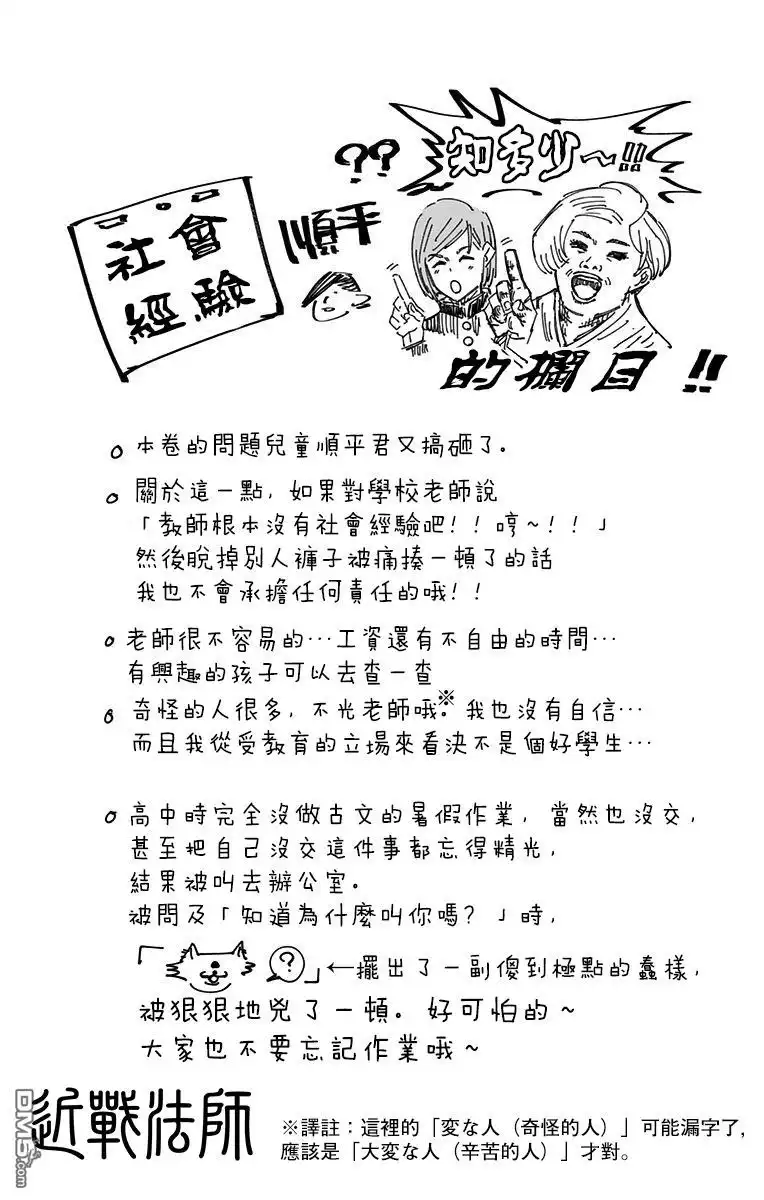 ??
知多少～!!!
社會
經驗
順平
的欄目!!
本卷的問題兒童順平君又搞砸了。
關於這一點，如果對學校老師說
「教師根本沒有社會經驗吧！！哼~！！」
然後脫掉別人褲子被痛揍一頓了的話
我也不會承擔任何責任的哦！！
老師很不容易的…工資還有不自由的時間…
有興趣的孩子可以去查一查
奇怪的人很多，不光老師哦※。我也沒有自信…
而且我從受教育的立場來看決不是個好學生…
高中時完全沒做古文的暑假作業，當然也沒交，
甚至把自己沒交這件事都忘得精光，
結果被叫去辦公室。
被問及「知道為什麼叫你嗎？」時，
「?」←擺出了一副傻到極點的蠢樣，
被狠狠地兇了一頓。好可怕的~
大家也不要忘記作業哦~
近戰法師
※譯註：這裡的「変な人（奇怪的人）」可能漏字了，
應該是「大変な人（辛苦的人）」才對。